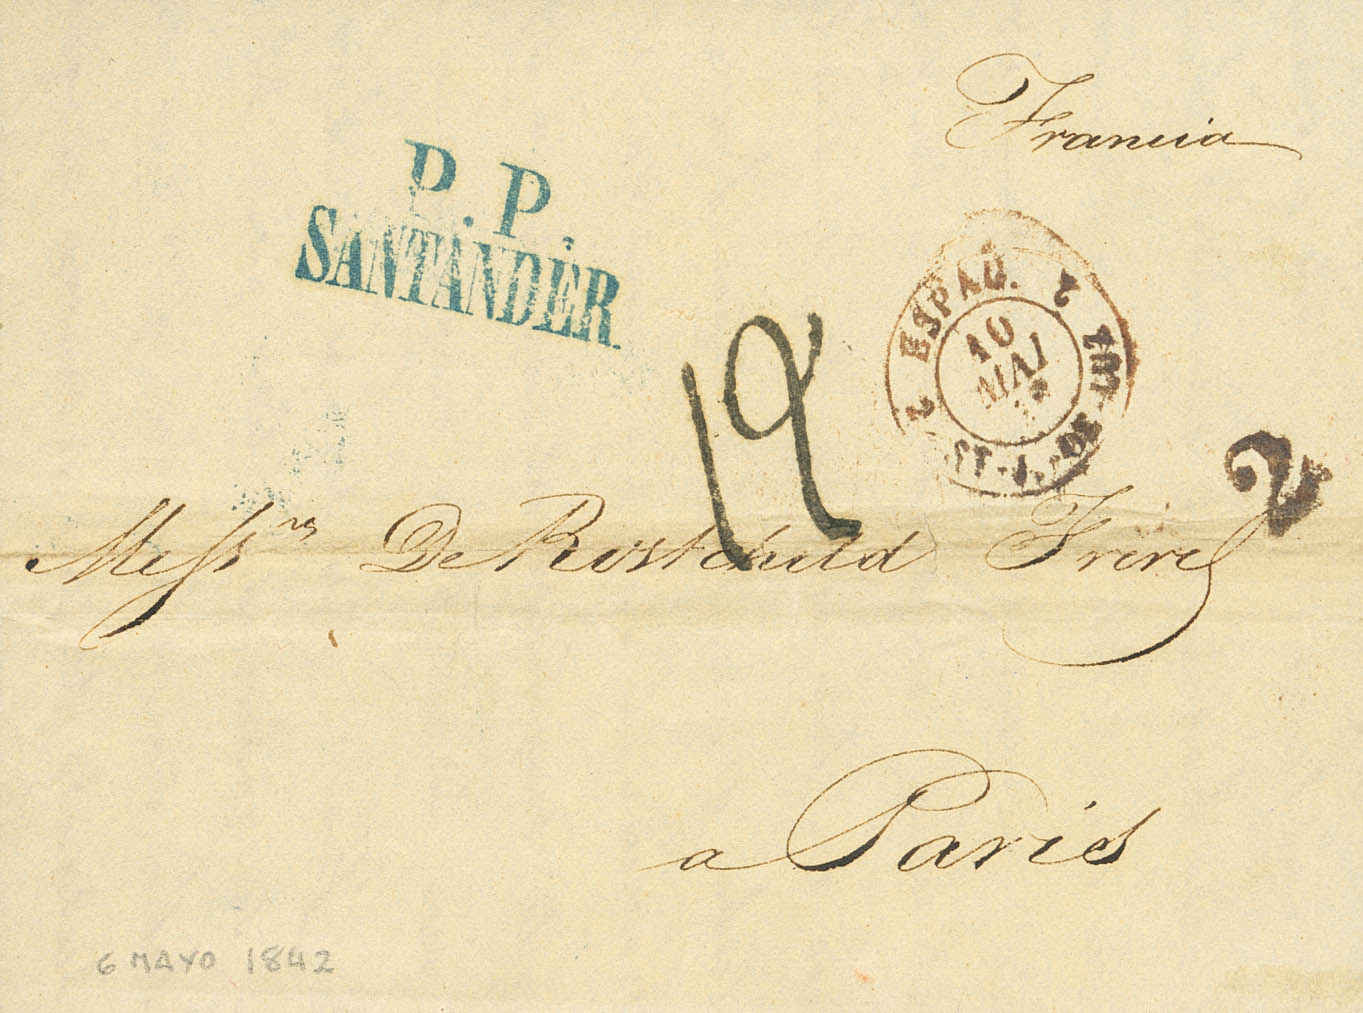 Francia
P. P.
SANTANDER.
2 ESPAG. 2
ST-J.-DE-LUZ
10
MAI
19
2
Messrs De Rostchild Freres
a Paris
6 MAYO 1842